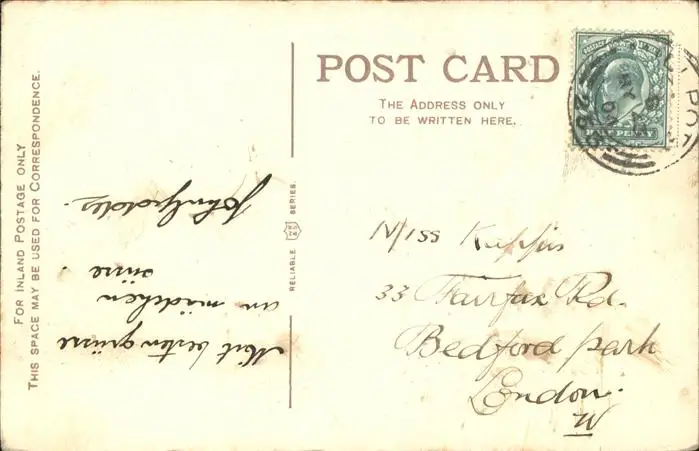 FOR INLAND POSTAGE ONLY
THIS SPACE MAY BE USED FOR CORRESPONDENCE.
POST CARD
THE ADDRESS ONLY
TO BE WRITTEN HERE.
POSTAGE
HALF PENNY
MY
RELIABLE SERIES.
Mit besten grüsse
an mädchen
süsse.
John
Miss Kappis
33 Fairfax Rd.
Bedford park
London.
W